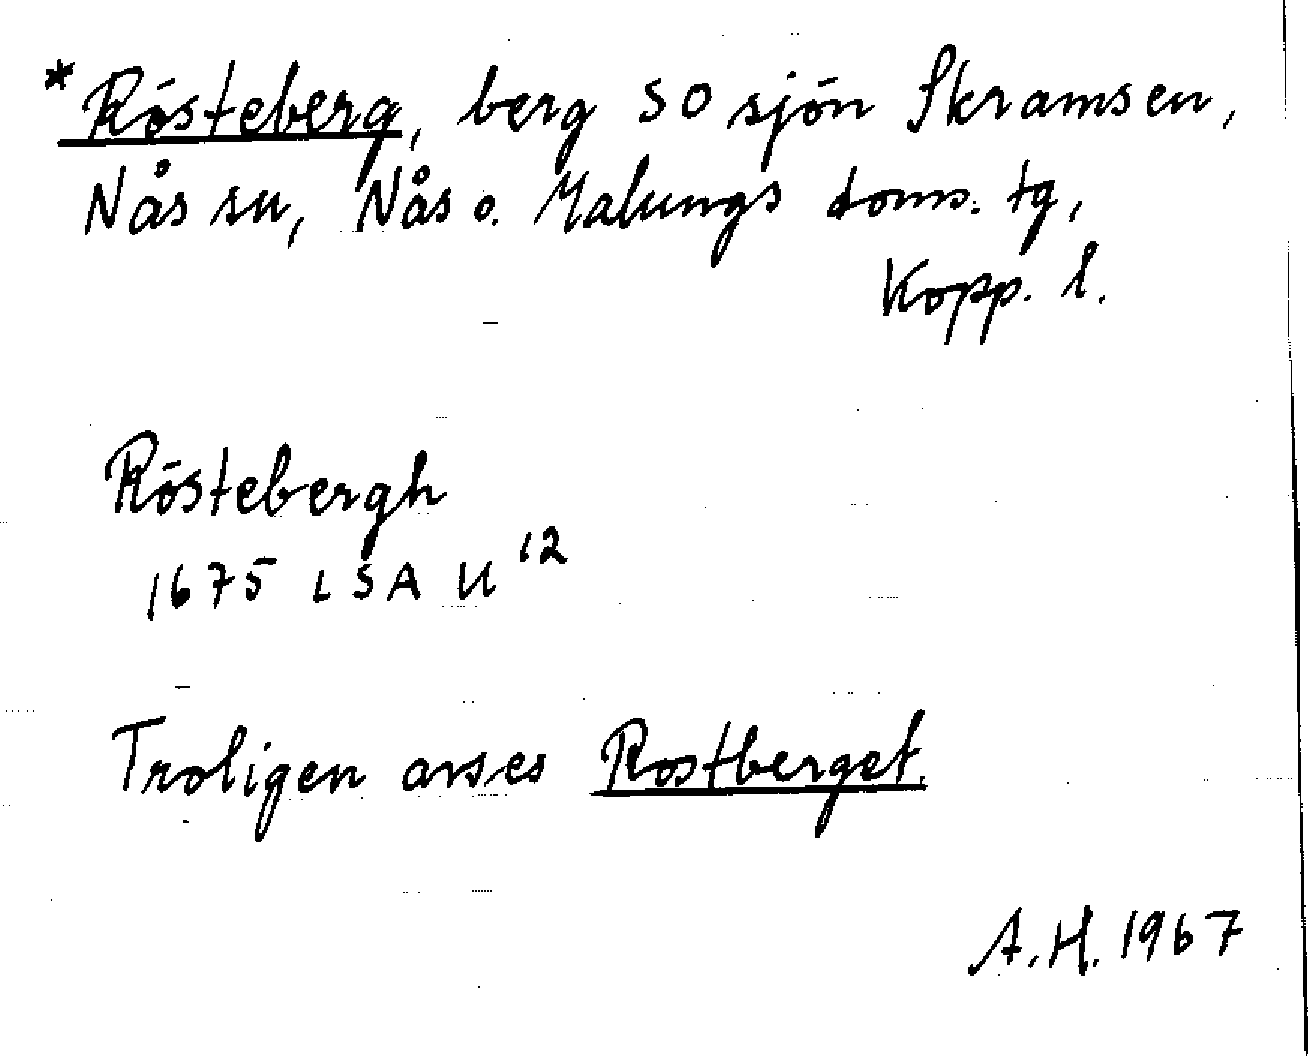 *Rösteberg, berg SO sjön Skramsen,
Nås sn, Nås o. Malungs doms. tg,
Kopp. l.
Röstebergh
1675 LSA U 12
Troligen avses Rostberget.
A.H. 1967